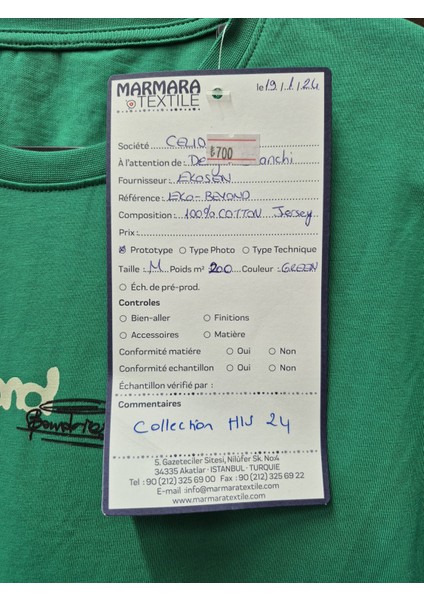 MARMARA
TEXTILE
le 19/1/24
Société CELIO
₺700
À l'attention de
Fournisseur: EKOSEN
Référence: EKO-BEYOND
Composition: 100% COTTON Jersey
Prix:
Prototype Type Photo Type Technique
Taille: M Poids m² 200 Couleur: GREEN
Éch. de pré-prod.
Controles
Bien-aller Finitions
Accessoires Matière
Conformité matière Oui Non
Conformité echantillon Oui Non
Échantillon vérifié par :
Commentaires
Collection HIV 24
5. Gazeteciler Sitesi, Nilüfer Sk. No:4
34335 Akatlar · ISTANBUL · TURQUIE
Tel : 90 (212) 325 69 00 Fax : 90 (212) 325 69 22
E-mail :info@marmaratextile.com
www.marmaratextile.com